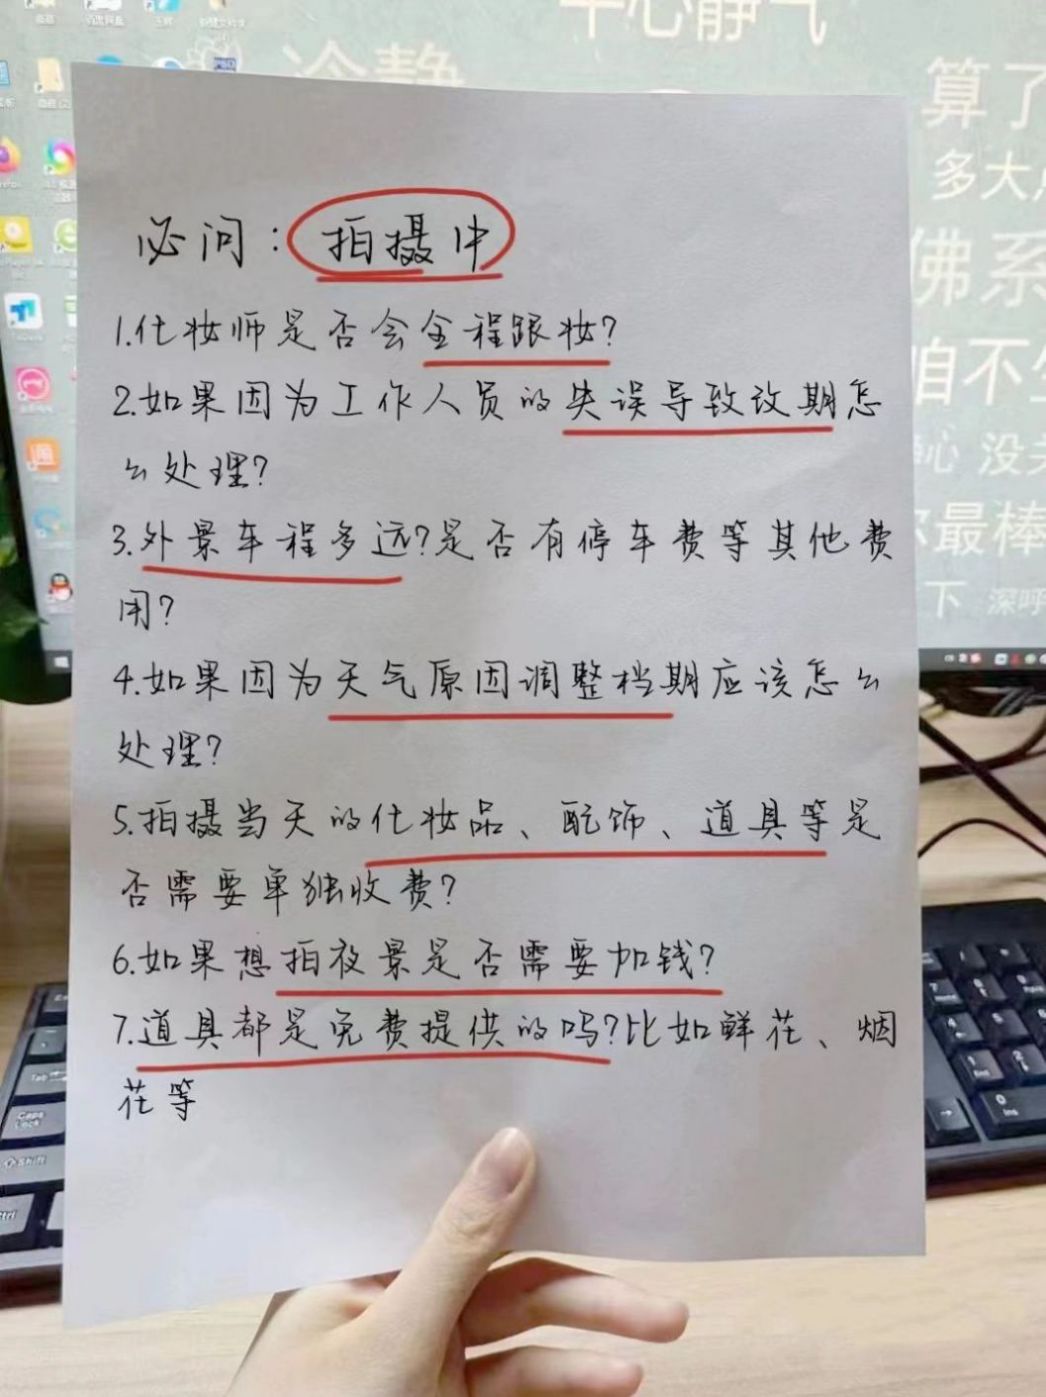 平心静气
冷静
算了
多大
佛系
咱不
心 没关
最棒
下 深呼
必问：拍摄中
1.化妆师是否会全程跟妆?
2.如果因为工作人员的失误导致改期怎
么处理?
3.外景车程多远?是否有停车费等其他费
用?
4.如果因为天气原因调整档期应该怎么
处理?
5.拍摄当天的化妆品、配饰、道具等是
否需要单独收费?
6.如果想拍夜景是否需要加钱?
7.道具都是免费提供的吗?比如鲜花、烟
花等
Tab
Caps
Lock
Shift
Ctrl
End
0
Ins